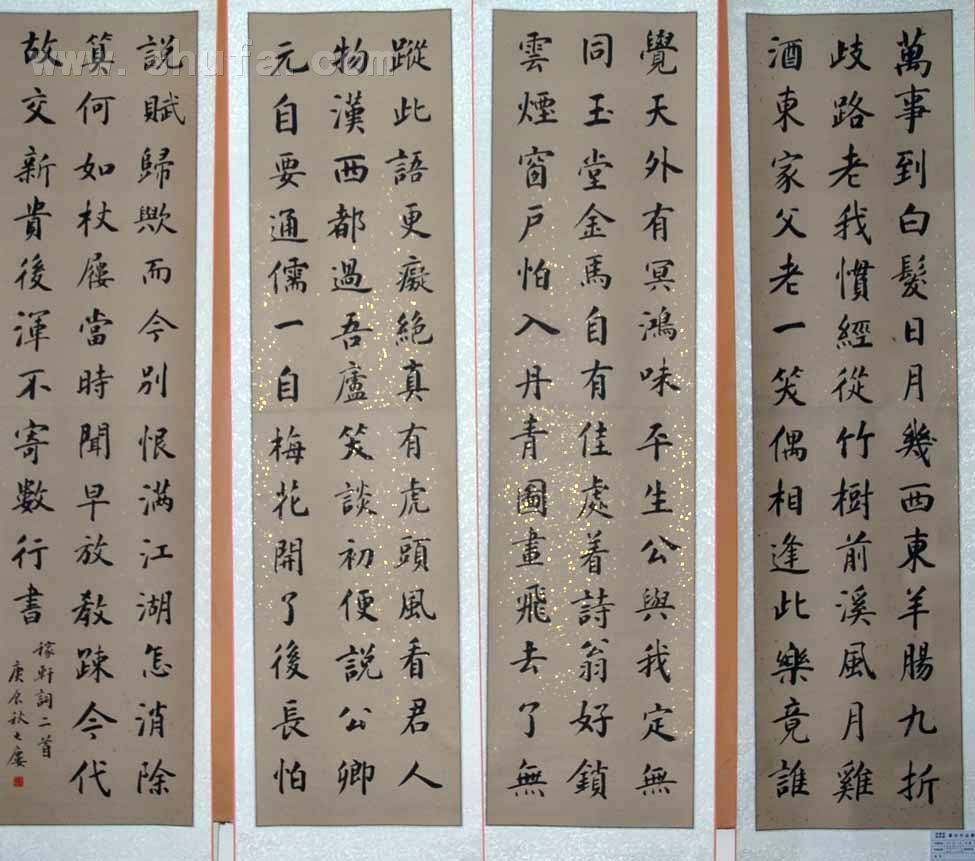 萬事到白髮日月幾西東羊腸九折
歧路老我慣經從竹樹前溪風月雞
酒東家父老一笑偶相逢此樂竟誰
覺天外有冥鴻味平生公與我定無
同玉堂金馬自有佳處着詩翁好鎖
雲煙窗戶怕入丹青圖畫飛去了無
蹤此語更癡絕真有虎頭風看君人
物漢西都過吾廬笑談初便說公卿
元自要通儒一自梅花開了後長怕
說賦歸歟而今別恨滿江湖怎消除
算何如杖屨當時聞早放教疎今代
故交新貴後渾不寄數行書
稼軒詞二首
庚辰秋
shufa.com